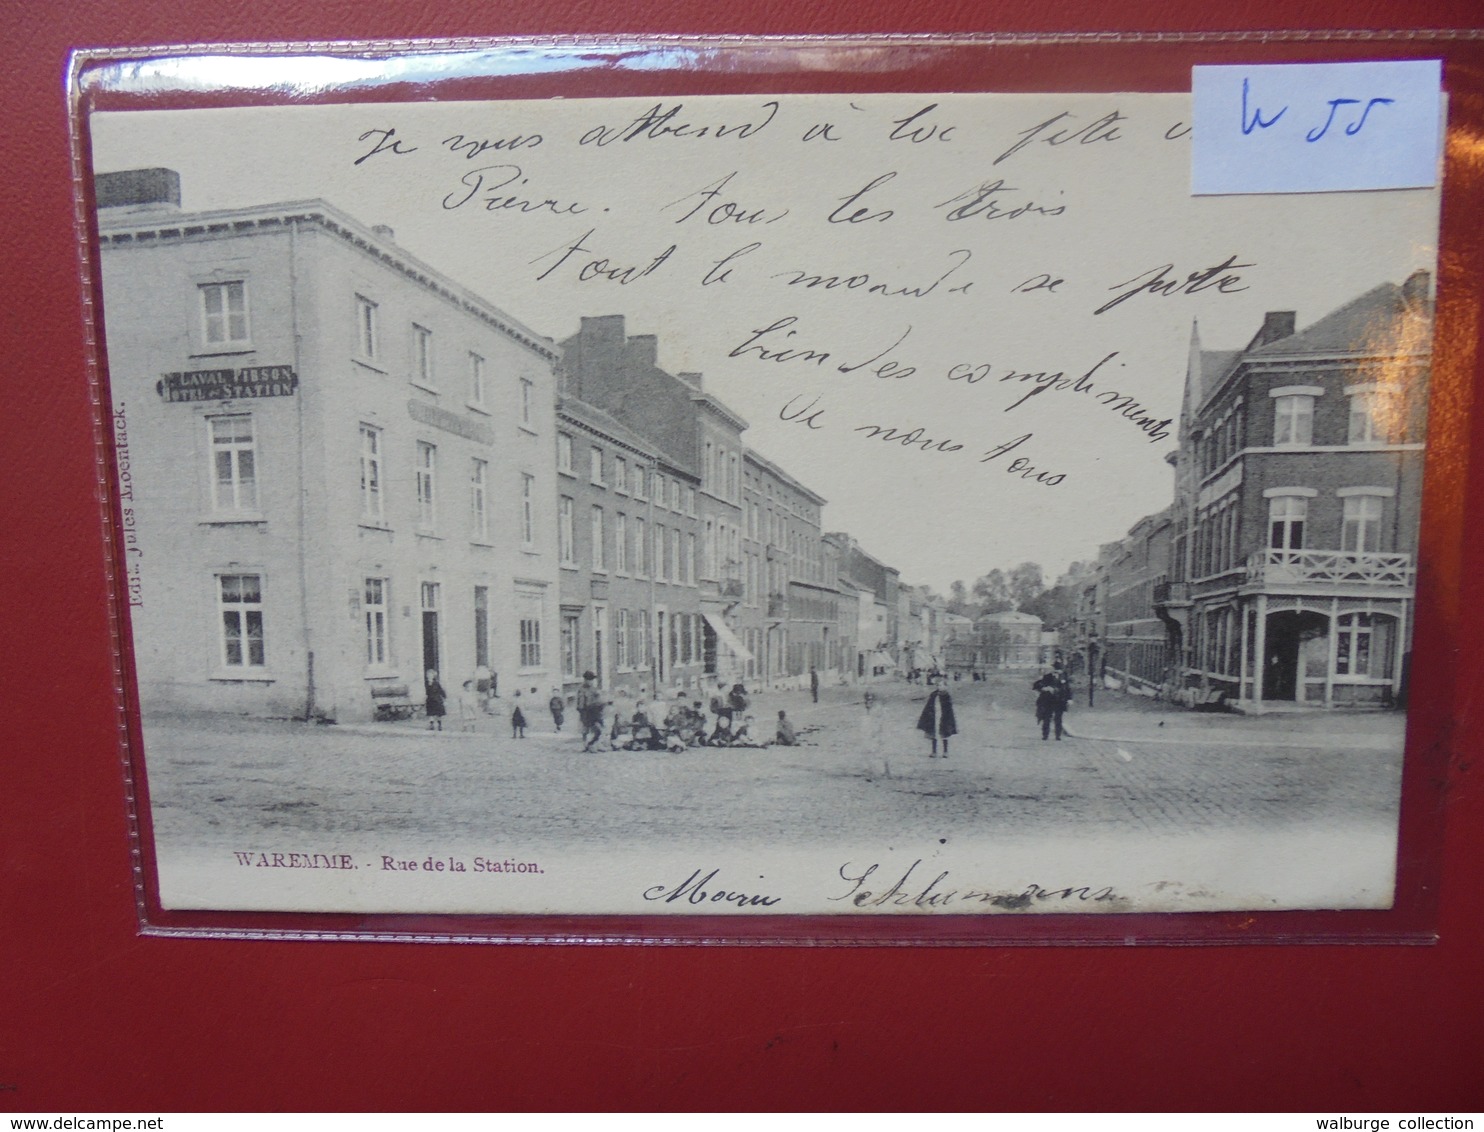 W 55
Je vous attend à la fete
Pièrre. tous les trois
tout le monde se pote
bien des compliments
de nous tous
LAVAL PIRSON
HOTEL DE STATION
Edit. Jules Moentack.
WAREMME. - Rue de la Station.
Maria Schlumans
delcampe.net
walburge collection